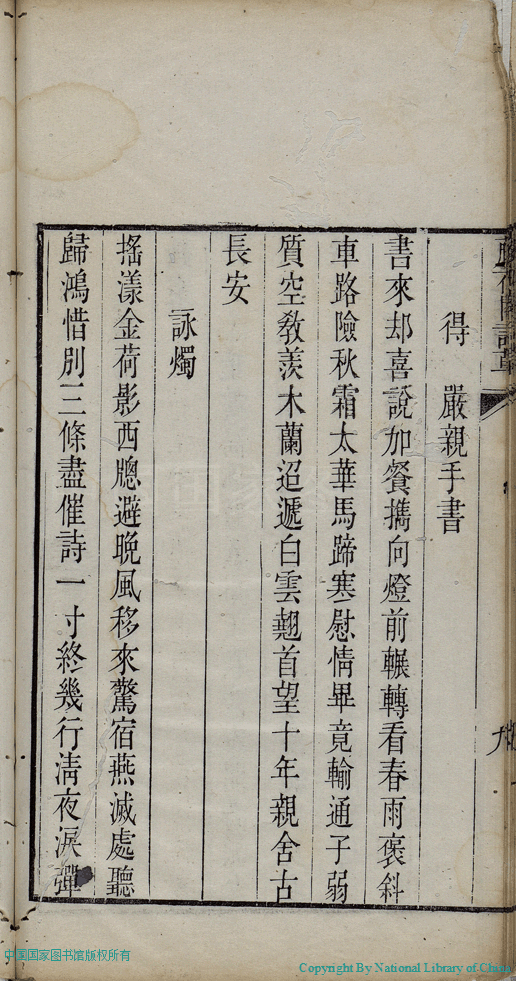 得　嚴親手書
書來却喜說加餐擕向燈前輾轉看春雨褒斜
車路險秋霜太華馬蹄寒慰情畢竟輸通子弱
質空敎羨木蘭迢遞白雲翹首望十年親舍古
長安
詠燭
搖漾金荷影西牕避晚風移來驚宿燕滅處聽
歸鴻惜別三條盡催詩一寸終幾行淸夜淚彈
中国国家图书馆版权所有
Copyright By National Library of China